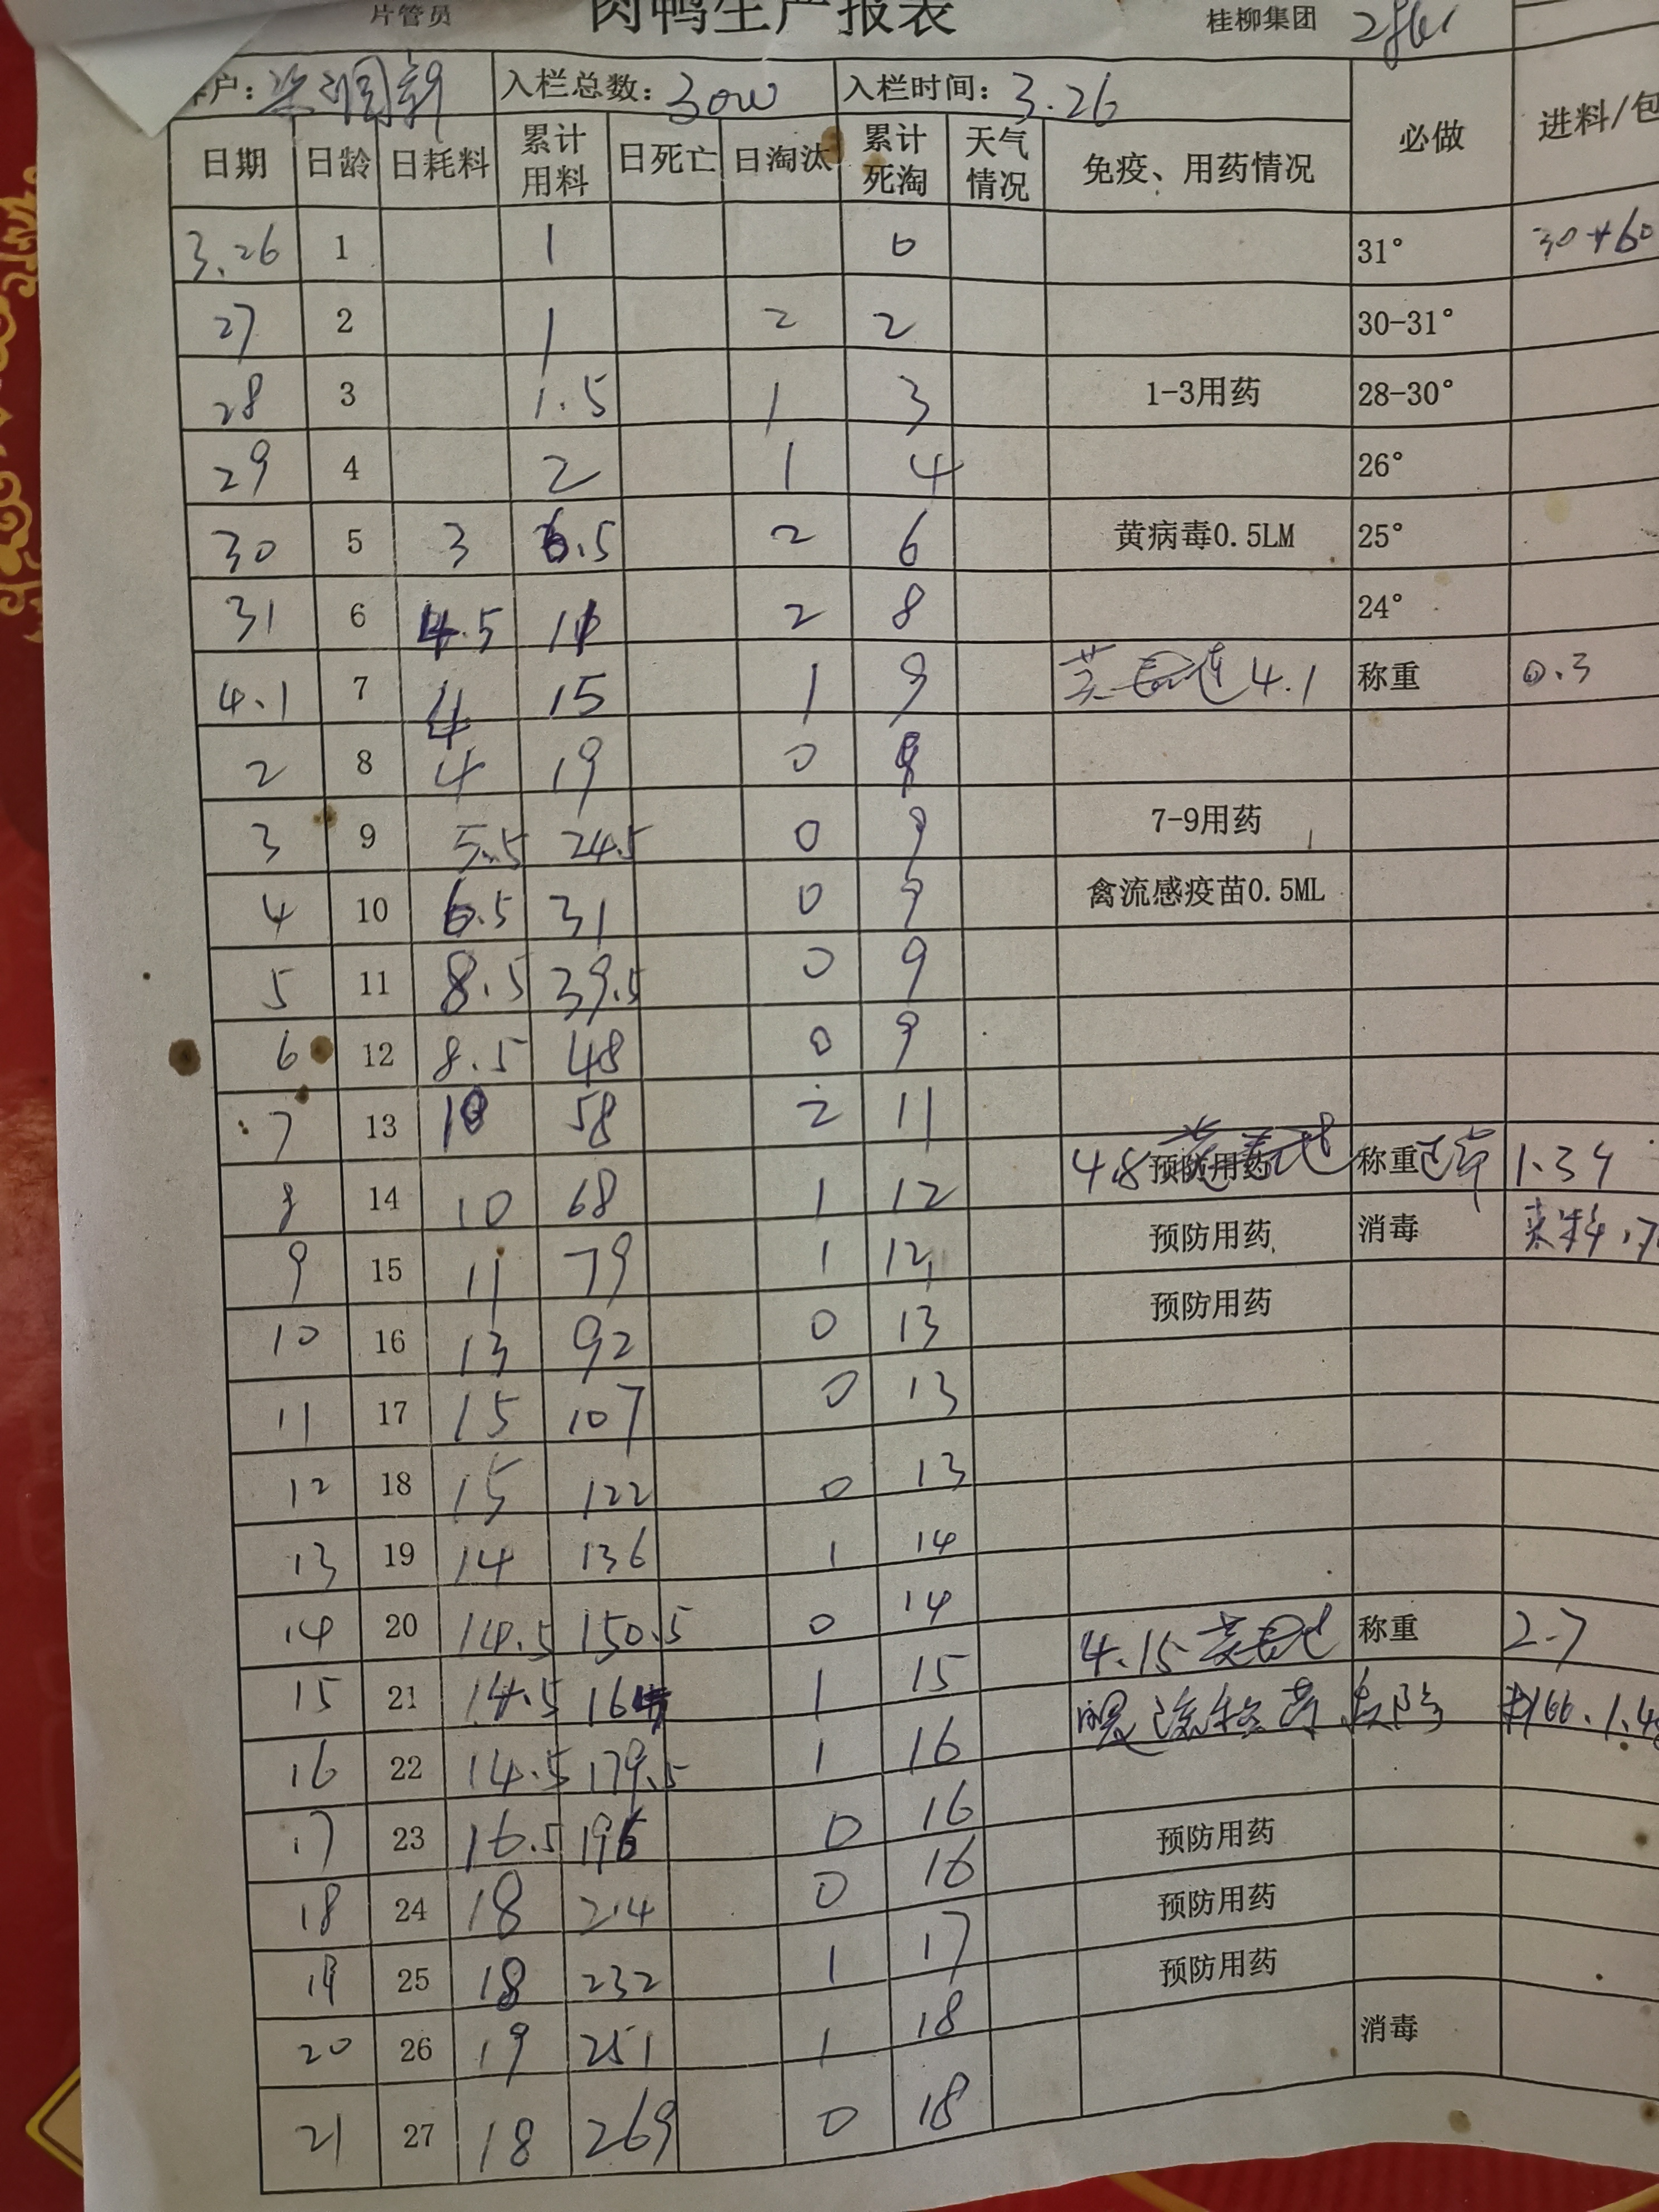 片管员 肉鸭生产报表 桂柳集团
户: 入栏总数: 3000 入栏时间: 3.26
日期 日龄 日耗料 累计用料 日死亡 日淘汰 累计死淘 天气情况 免疫、用药情况 必做 进料/包
3.26 1 1 0 31° 30+60
27 2 1 2 2 30-31°
28 3 1.5 1 3 1-3用药 28-30°
29 4 2 1 4 26°
30 5 3 6.5 2 6 黄病毒0.5LM 25°
31 6 4.5 11 2 8 24°
4.1 7 4 15 1 9 4.1 称重 0.3
2 8 4 19 0 9
3 9 5.5 24.5 0 9 7-9用药
4 10 6.5 31 0 9 禽流感疫苗0.5ML
5 11 8.5 39.5 0 9
6 12 8.5 48 0 9
7 13 10 58 2 11
8 14 10 68 1 12 4.8 预防用药 称重 1.34
9 15 11 79 1 12 预防用药 消毒
10 16 13 92 0 13 预防用药
11 17 15 107 0 13
12 18 15 122 0 13
13 19 14 136 1 14
14 20 14.5 150.5 0 14 4.15 称重 2.7
15 21 14.5 164 1 15
16 22 14.5 179.5 1 16
17 23 16.5 196 0 16 预防用药
18 24 18 214 0 16 预防用药
19 25 18 232 1 17 预防用药
20 26 19 251 1 18 消毒
21 27 18 269 0 18